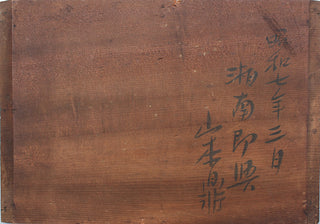 昭和七年三月
湘南即興
山本鼎